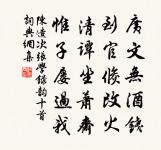 廣文無酒錢
到官候改火
清譚坐蕭齋
惟子屢過我
陳造次張學錄韻十首
詞典網集